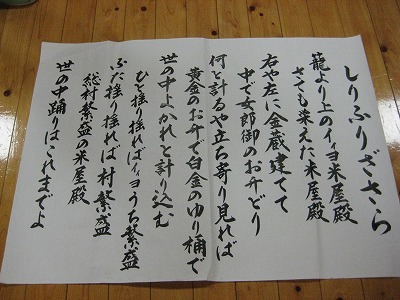 しりふりざさら
籠より上のイィヨ米屋殿
さても栄えた米屋殿
右や左に金蔵建てて
中で女郎御のお弁どり
何と計るや立ち寄り見れば
黄金のお弁で白金のゆり桶で
世の中よかれと計り込む
ひと揺り揺ればィヨうち繁盛
ふた揺り揺れば村繁盛
総村繁盛の米屋殿
世の中踊りはこれまでよ